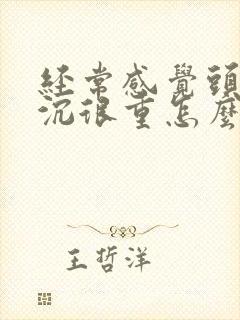 經常感覺頭
沉很重怎麼
王哲洋